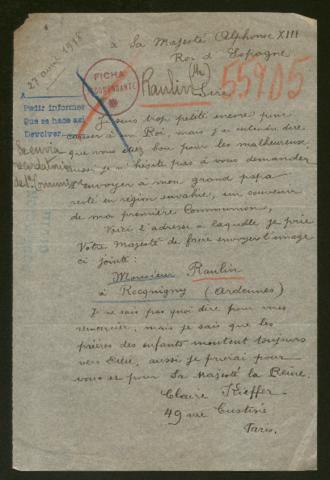 27 avril 1918
à Sa Majesté Alphonse XIII
Roi d'Espagne
FICHA
Raulin
Sire
55905
Je suis trop petite encore pour
causer à un Roi, mais j'ai entendu dire
que vous étiez bon pour les malheureux
aussi je n'hésite pas à vous demander
d'envoyer à mon grand papa
resté en région envahie, un souvenir
de ma première Communion,
Voici l'adresse à laquelle je prie
Votre Majesté de faire envoyer l'image
ci jointe:
Monsieur Raulin
à Rocquigny (Ardennes)
Je ne sais pas quoi dire pour vous
remercier, mais je sais que les
prières des enfants montent toujours
vers Dieu, aussi je prierai pour
vous et pour Sa Majesté la Reine.
Claire Kieffer
49 rue Custine
Paris.
Pedir informes
Que se hace así
Devolver
Se envia
recordatorio
de 1ª Comunión